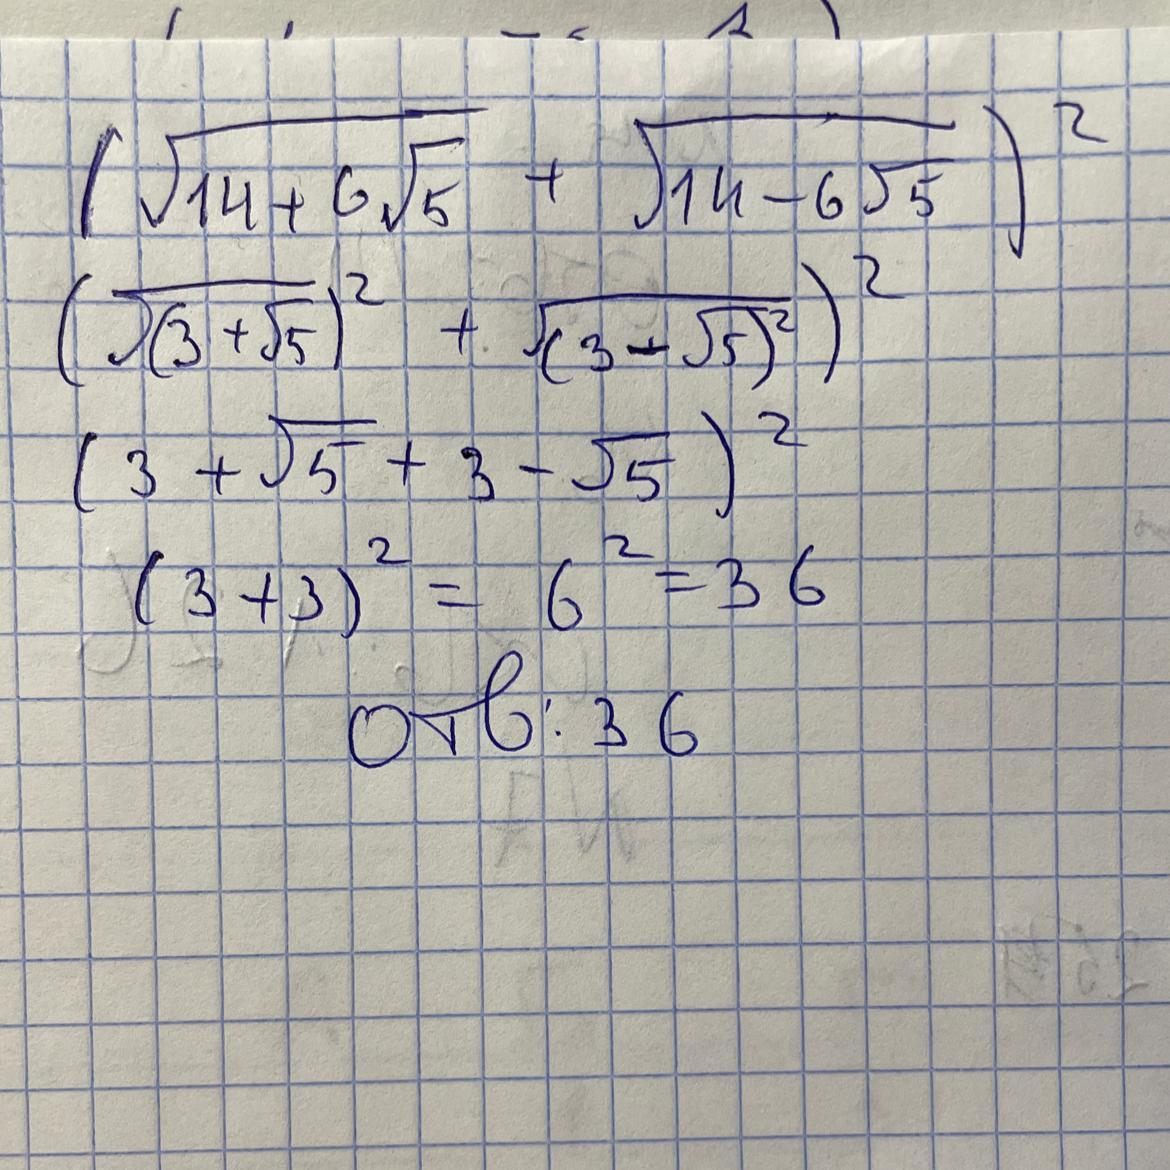 (√14+6√5 + √14-6√5)²
(√(3+√5)² + √(3-√5)²)²
(3+√5+3-√5)²
(3+3)² = 6² = 36
Отв: 36